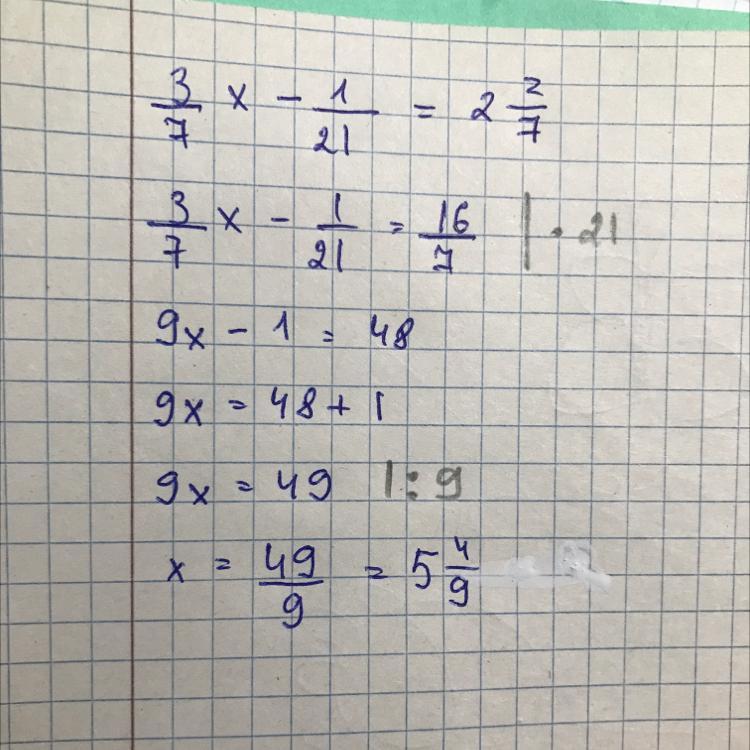 3/7 x - 1/21 = 2 2/7
3/7 x - 1/21 = 16/7 | · 21
9x - 1 = 48
9x = 48 + 1
9x = 49 | : 9
x = 49/9 = 5 4/9